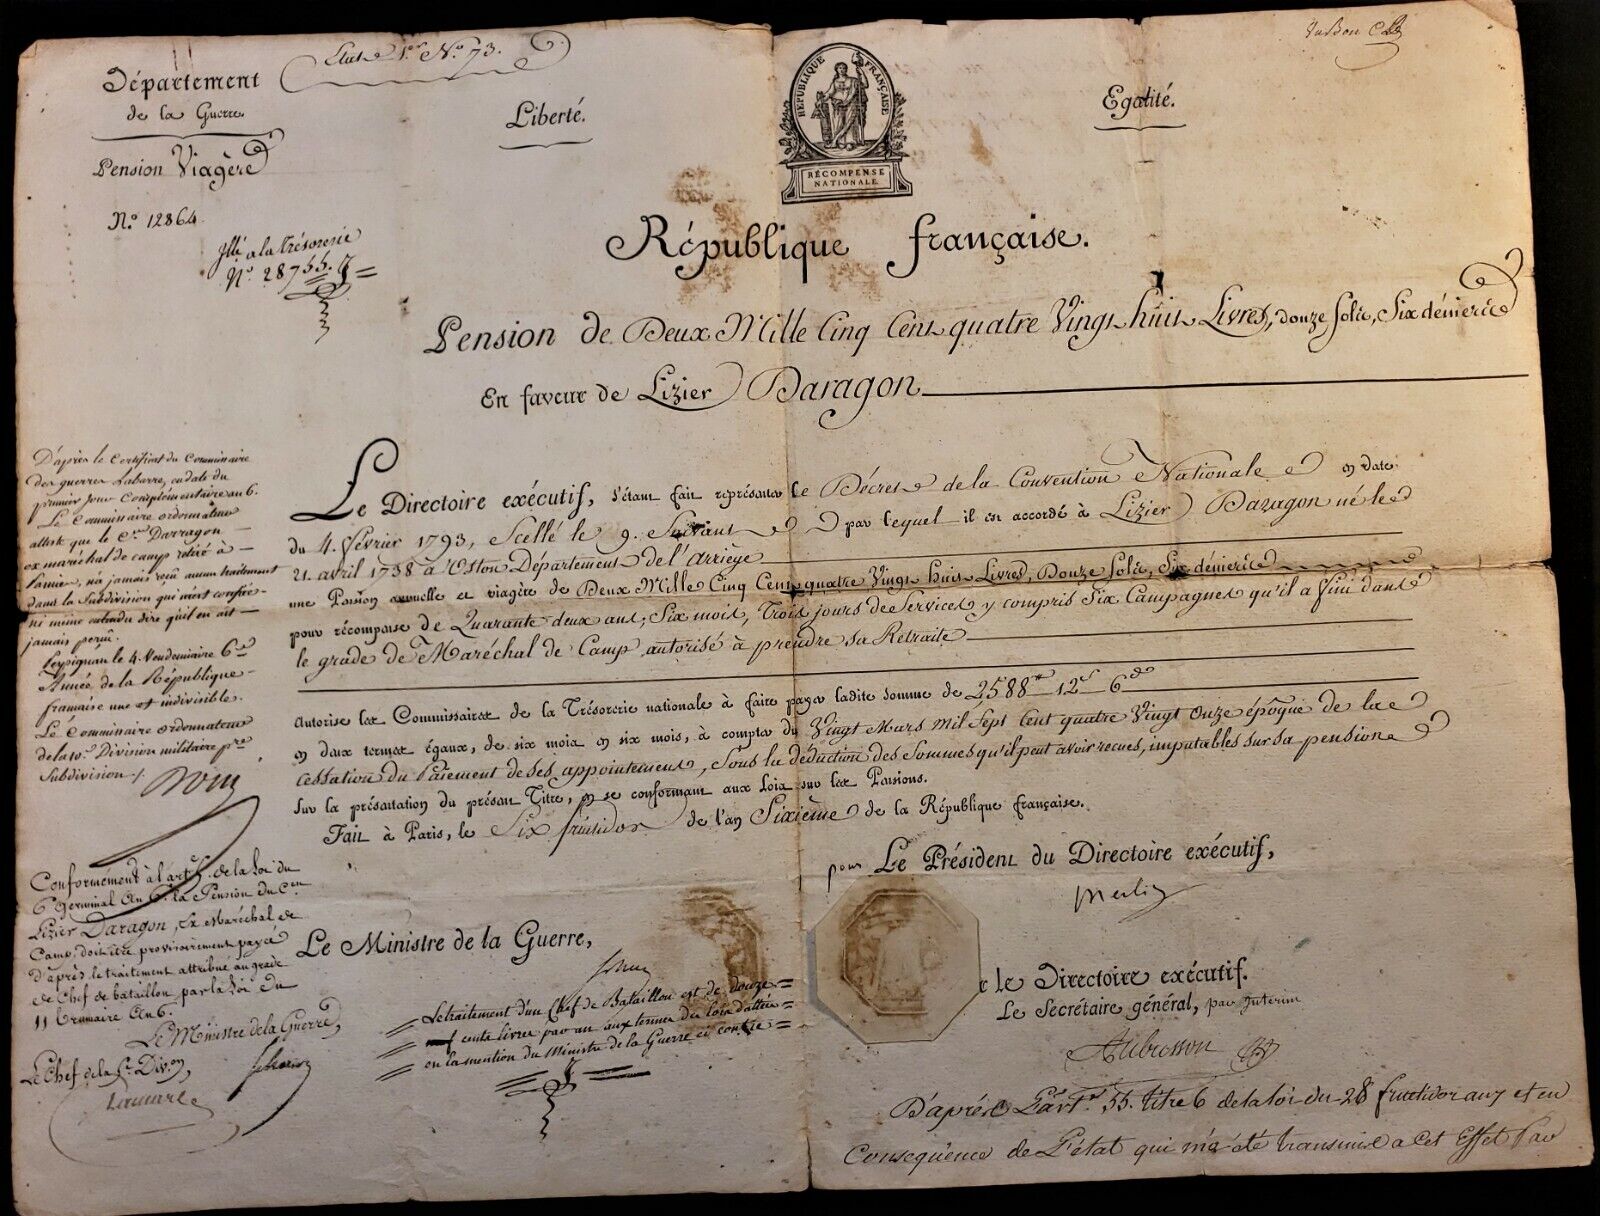 Département
de la Guerre.
Pension Viagère
N.º 12864
a la trésorerie
N.º 28755.
Etat 1.er N.º 73.
Liberté.
RÉPUBLIQUE FRANÇAISE
RÉCOMPENSE
NATIONALE.
Egalité.
République française.
Pension de Deux Mille Cinq Cent quatre Vingt huit Livres, douze sols, Six deniers
En faveur de Lizier Daragon
Le Directoire exécutif, s'étant fait représenter le Décret de la Convention Nationale en date
du 4. février 1793, Scellé le 9. Suivant par lequel il est accordé à Lizier Daragon né le
21. avril 1738 à Oston Département de l'Arriège
une Pension annuelle et viagère de Deux Mille Cinq Cent quatre Vingt huit Livres, Douze Sols, Six deniers
pour récompense de Quarante deux ans, Six mois, Trois jours de Services y compris Six Campagnes qu'il a fini dans
le grade de Maréchal de Camp autorisé à prendre sa Retraite
Autorise les Commissaires de la Trésorerie nationale à faire payer ladite somme de 2588tt 12s 6d
en deux termes égaux, de six mois en six mois, à compter du Vingt Mars mil Sept Cent quatre Vingt Onze époque de la
cessation du Paiement de ses appointements, Sous la déduction des Sommes qu'il peut avoir recues, imputables sur sa pension
Sur la présentation du présent Titre, en se conformant aux Lois sur les Pensions.
Fait à Paris, le Six fructidor de l'an Sixième de la République française.
pour Le Président du Directoire exécutif,
Merlin
Le Ministre de la Guerre,
le Directoire exécutif.
Le Secrétaire général, par interim
Aubusson
Le traitement d'un Chef de Bataillon est de douze
cents livres par an aux termes des lois
ou la mention du Ministre de la Guerre ci contre
D'après l'art. 55. titre 6 de la loi du 28 fructidor an 7 et en
Conséquence de L'état qui m'a été transmis a cet Effet Par
D'après le Certificat du Commissaire
des guerres Labarre, en date du
premier jour Complémentaire an 6.
Le Commissaire ordonnateur
atteste que le C.en Darragon
ex maréchal de camp retiré à
Pamiers, n'a jamais reçu aucun traitement
dans la Subdivision qui m'est confiée
ni meme entendu dire qu'il en ait
jamais perçu.
Perpignan le 4 Vendemiaire
Année de la République
francaise une et indivisible.
Le Commissaire ordonnateur
de la 10.e Division militaire p.re
Subdivision
Conformément à l'art. de la Loi du
6 germinal An 6. la Pension du C.en
Lizier Daragon, Ex Maréchal de
Camp, doit être provisoirement payée
d'après le traitement attribué au grade
de Chef de bataillon par la Loi du
11 brumaire An 6.
Le Ministre de la Guerre,
Le Chef de la Div.on,